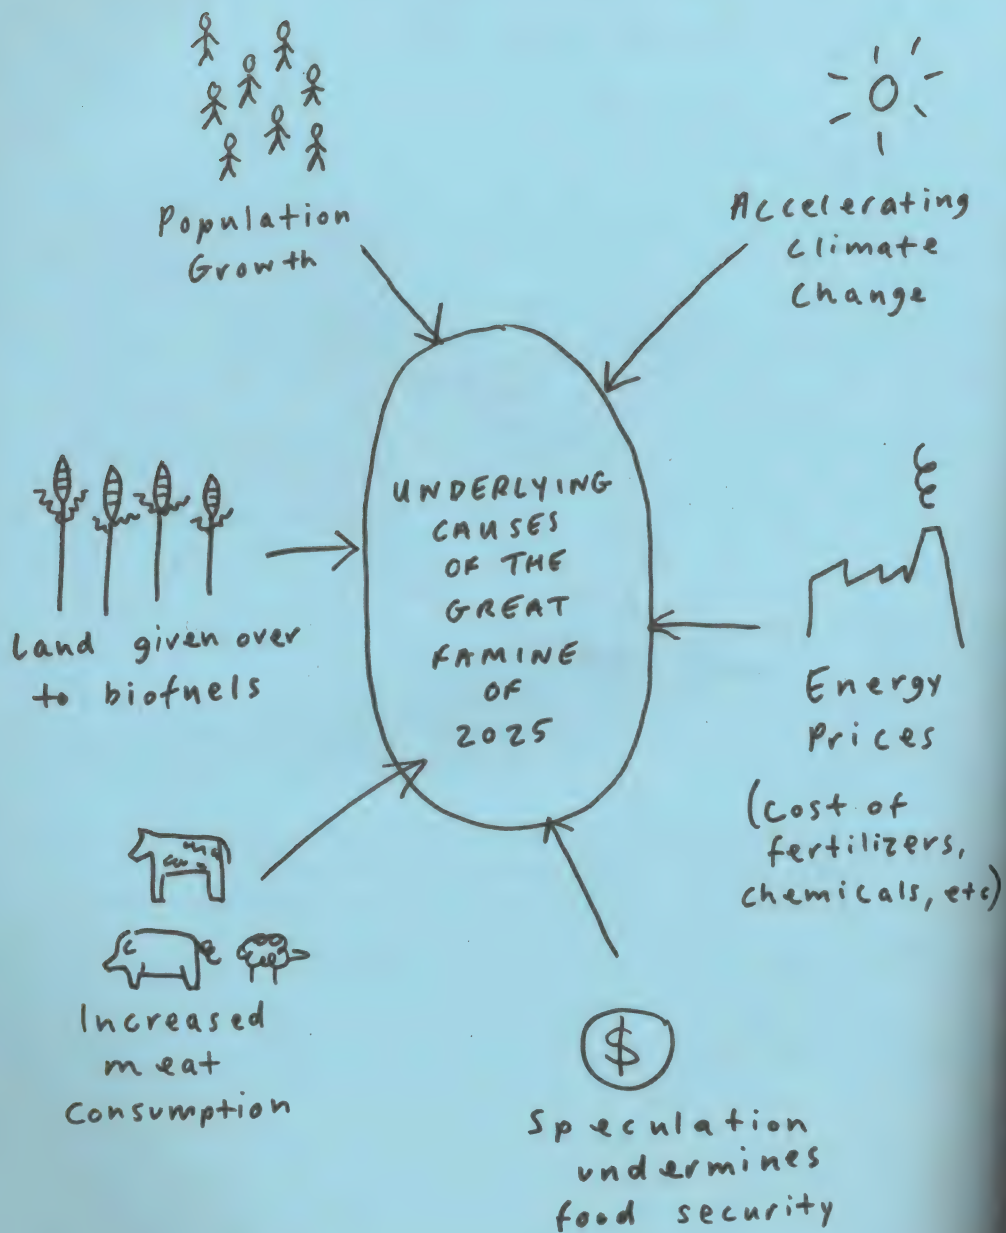 Population
Growth
Accelerating
Climate
Change
UNDERLYING
CAUSES
OF THE
GREAT
FAMINE
OF
2025
Land given over
to biofuels
Energy
Prices
(cost of
fertilizers,
chemicals, etc)
Increased
meat
consumption
$
Speculation
undermines
food security